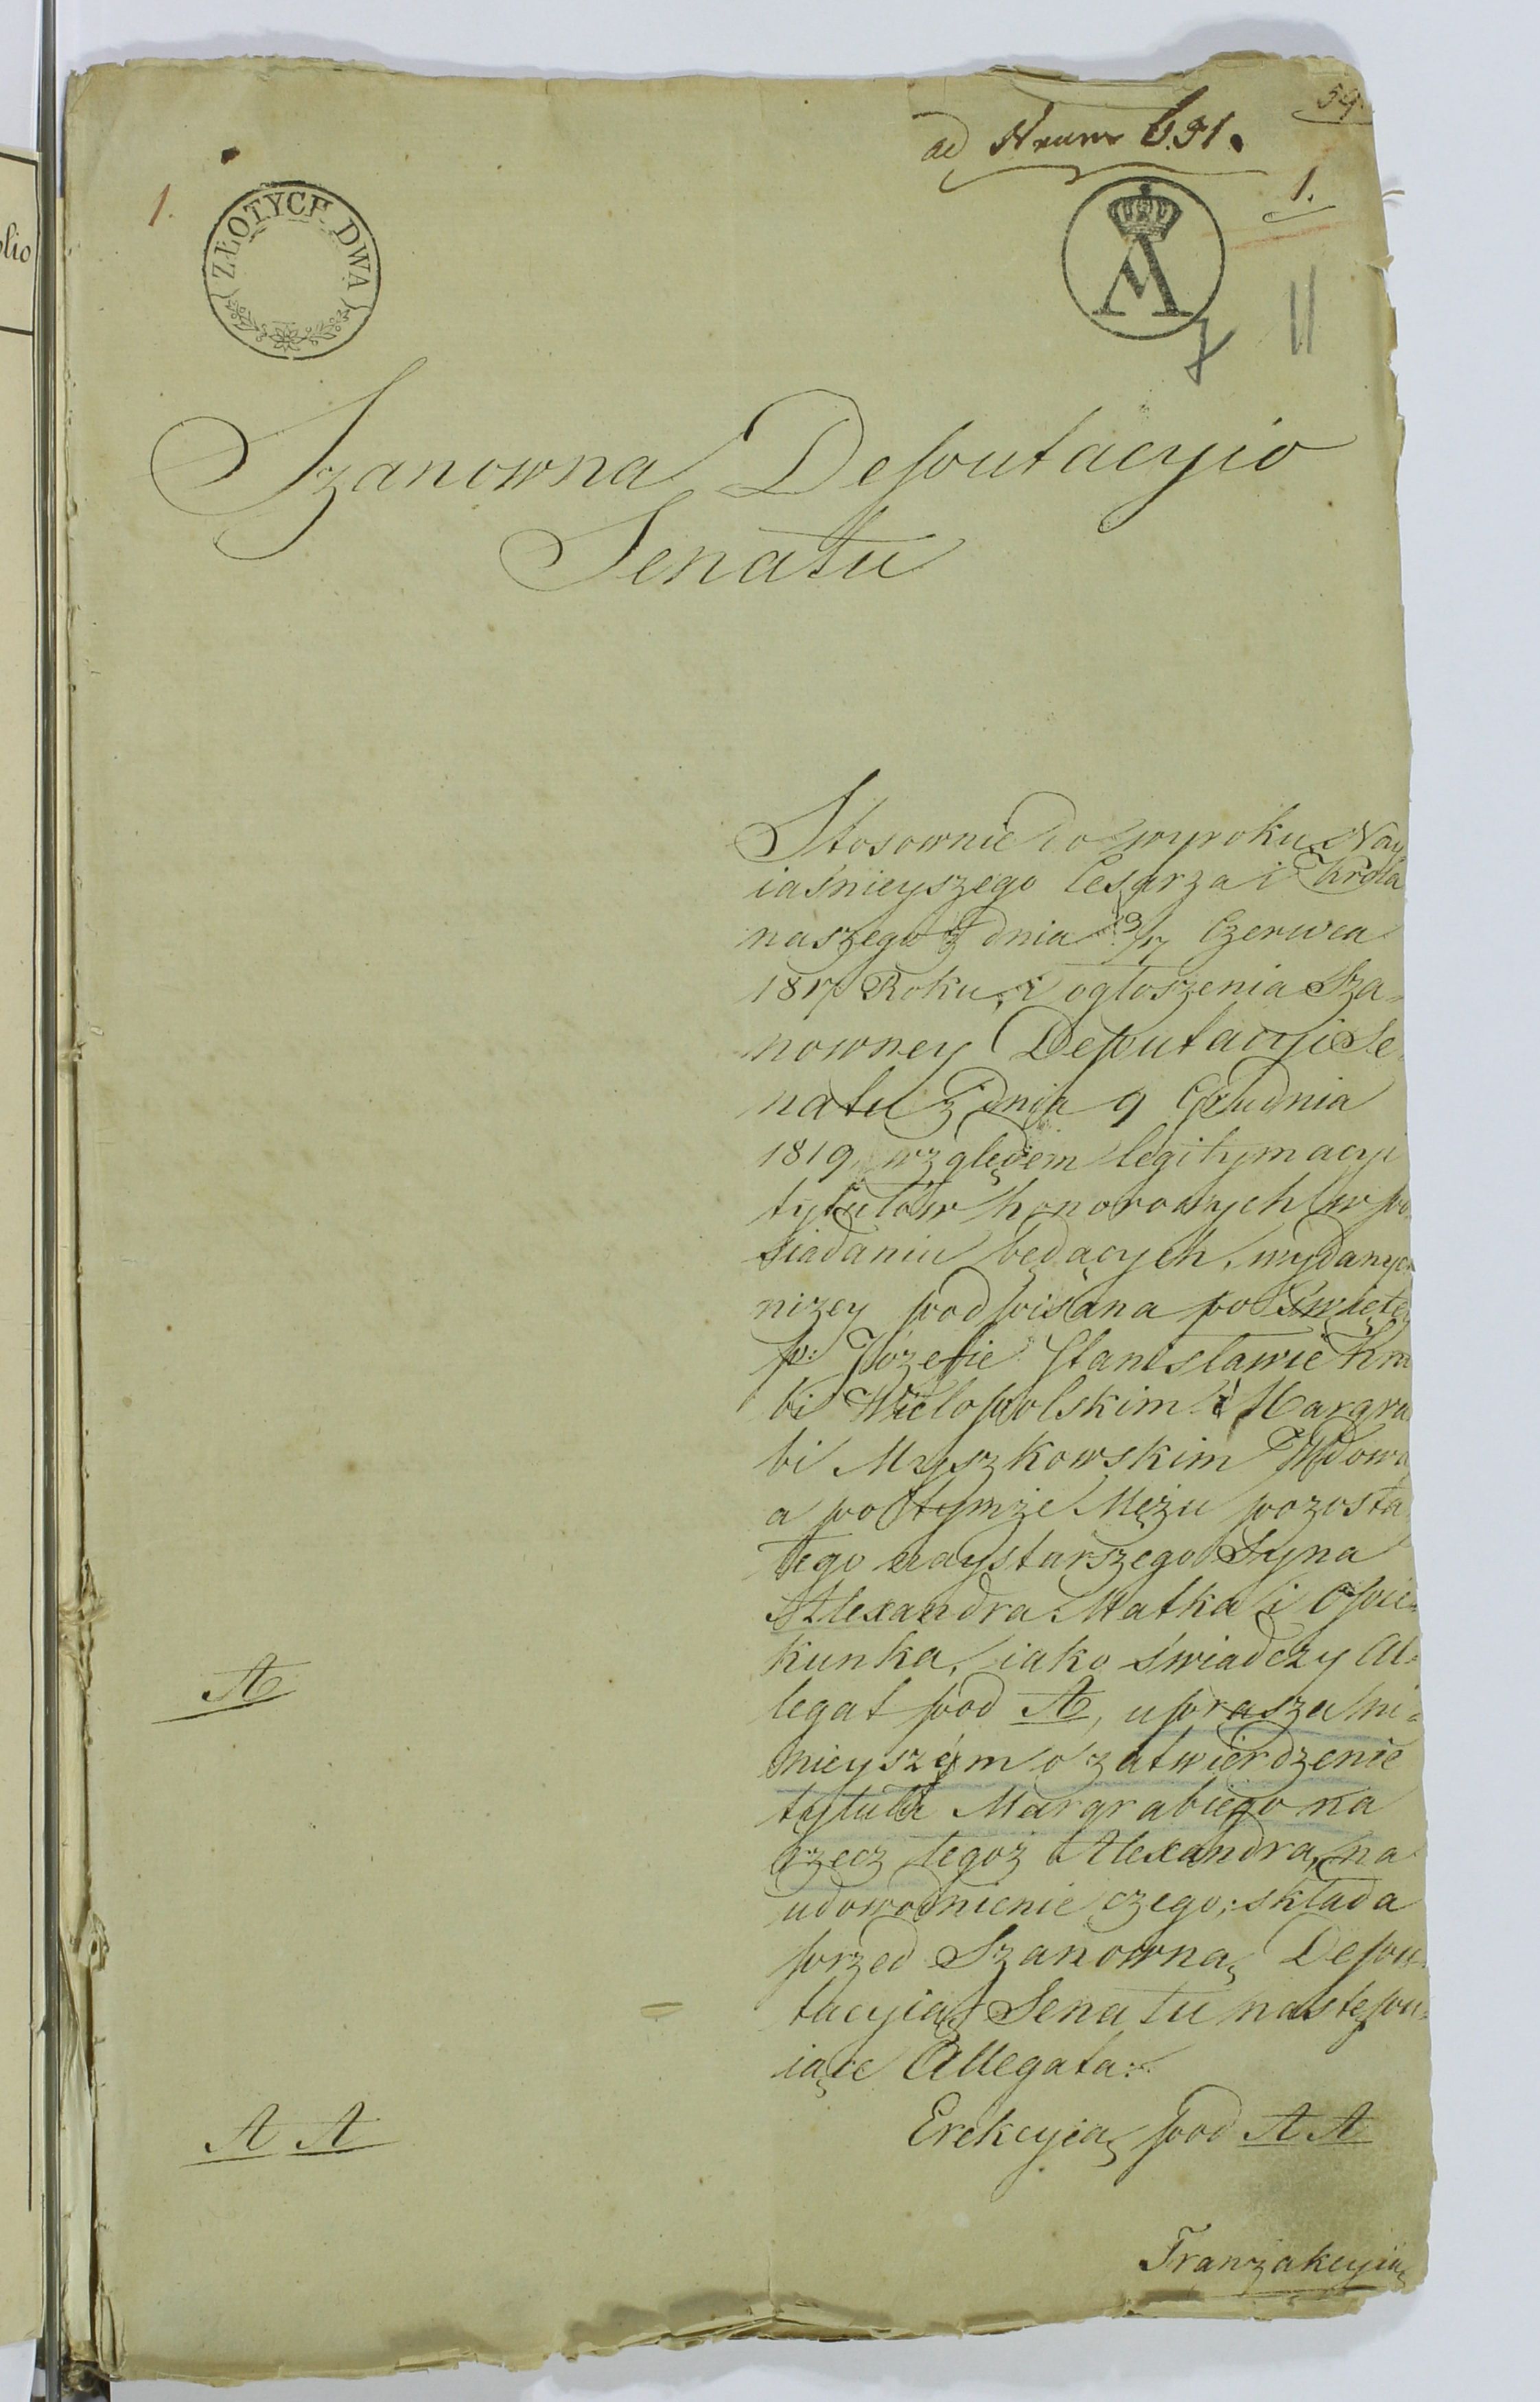 59.
ad Nrum 691.
1.
1.
ZŁOTYCH DWA
A
II
Szanowna Deputacyio
Senatu
Stosownie do wyroku Nay
iaśnieyszego Cesarza i Króla
naszego z dnia 3/17 Czerwca
1817 Roku, i ogłoszenia Sza-
nowney Deputacyi Se
natu z dnia 9 Grudnia
1819, względem legitymacyi
tytułów honorowych w po
siadaniu będących, wydanych
niżey podpisana po Święte
p: Józefie Stanisławie Hra
bi Wielopolskim i Margra
bi Myszkowskim Wdowa
a po tymże Mężu pozosta
łego naystarszego Syna
Alexandra Matka i Opie-
kunka, iako świadczy Al-
legat pod A, uprasza ni-
nieyszym o zatwierdzenie
tytułu Margrabiego na
rzecz tegoż Alexandra, na
udowodnienie czego, składa
przed Szanowną Depu-
tacyią Senatu następu-
iące Allegata:
A
Erekcyią pod AA
A A
Tranzakcyią